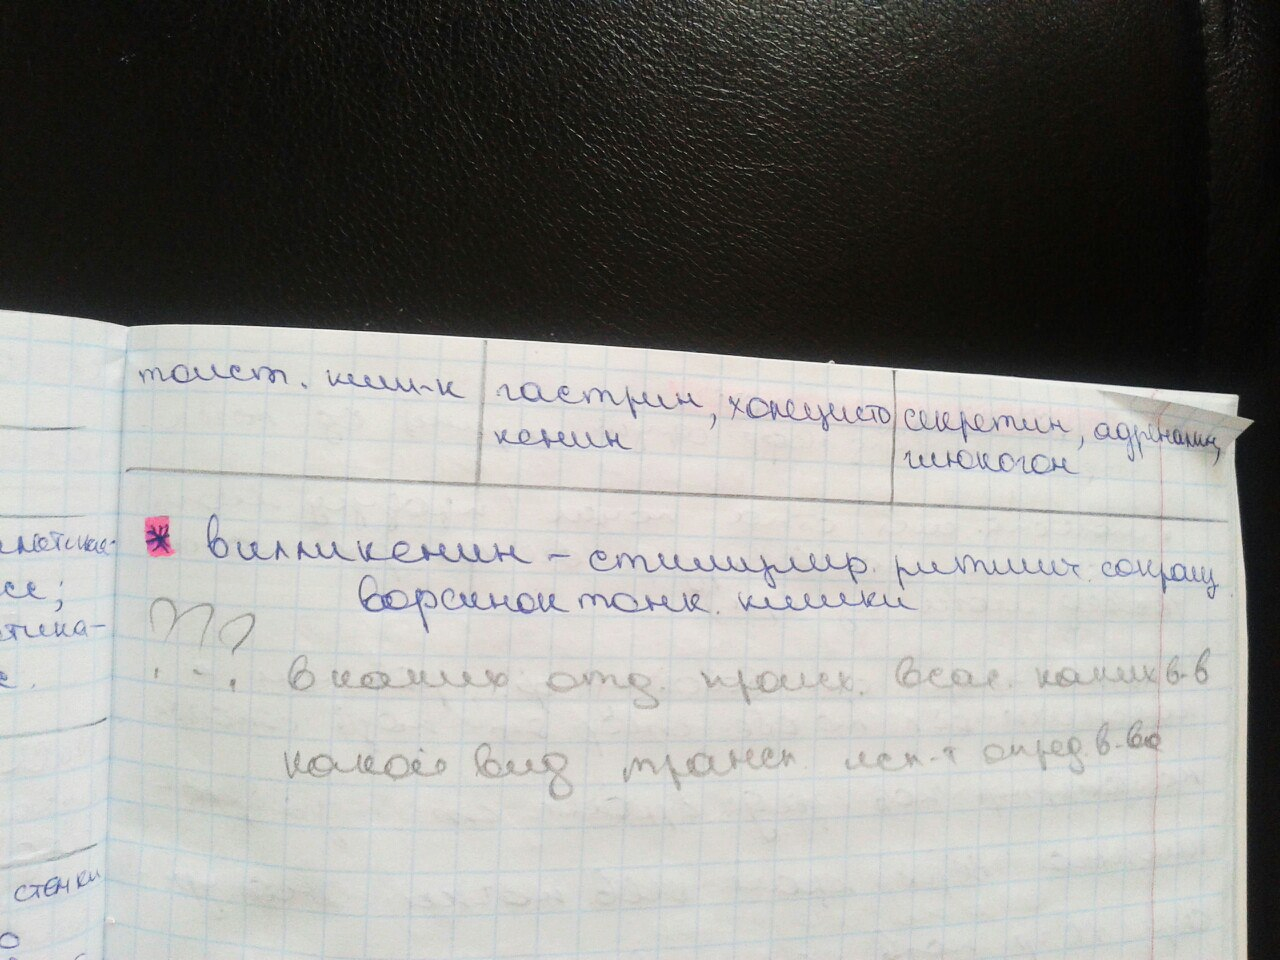 толст. киш-к
гастрин, холецисто
кенин
секретин, адреналин,
глюкогон
* вилликенин – стимулир. ритмич. сокращ.
ворсинок тонк. кишки
???
в каких отд. происх. всас. каких в-в
какой вид трансп исп-т опред в-ва
се;
тика-
стенки